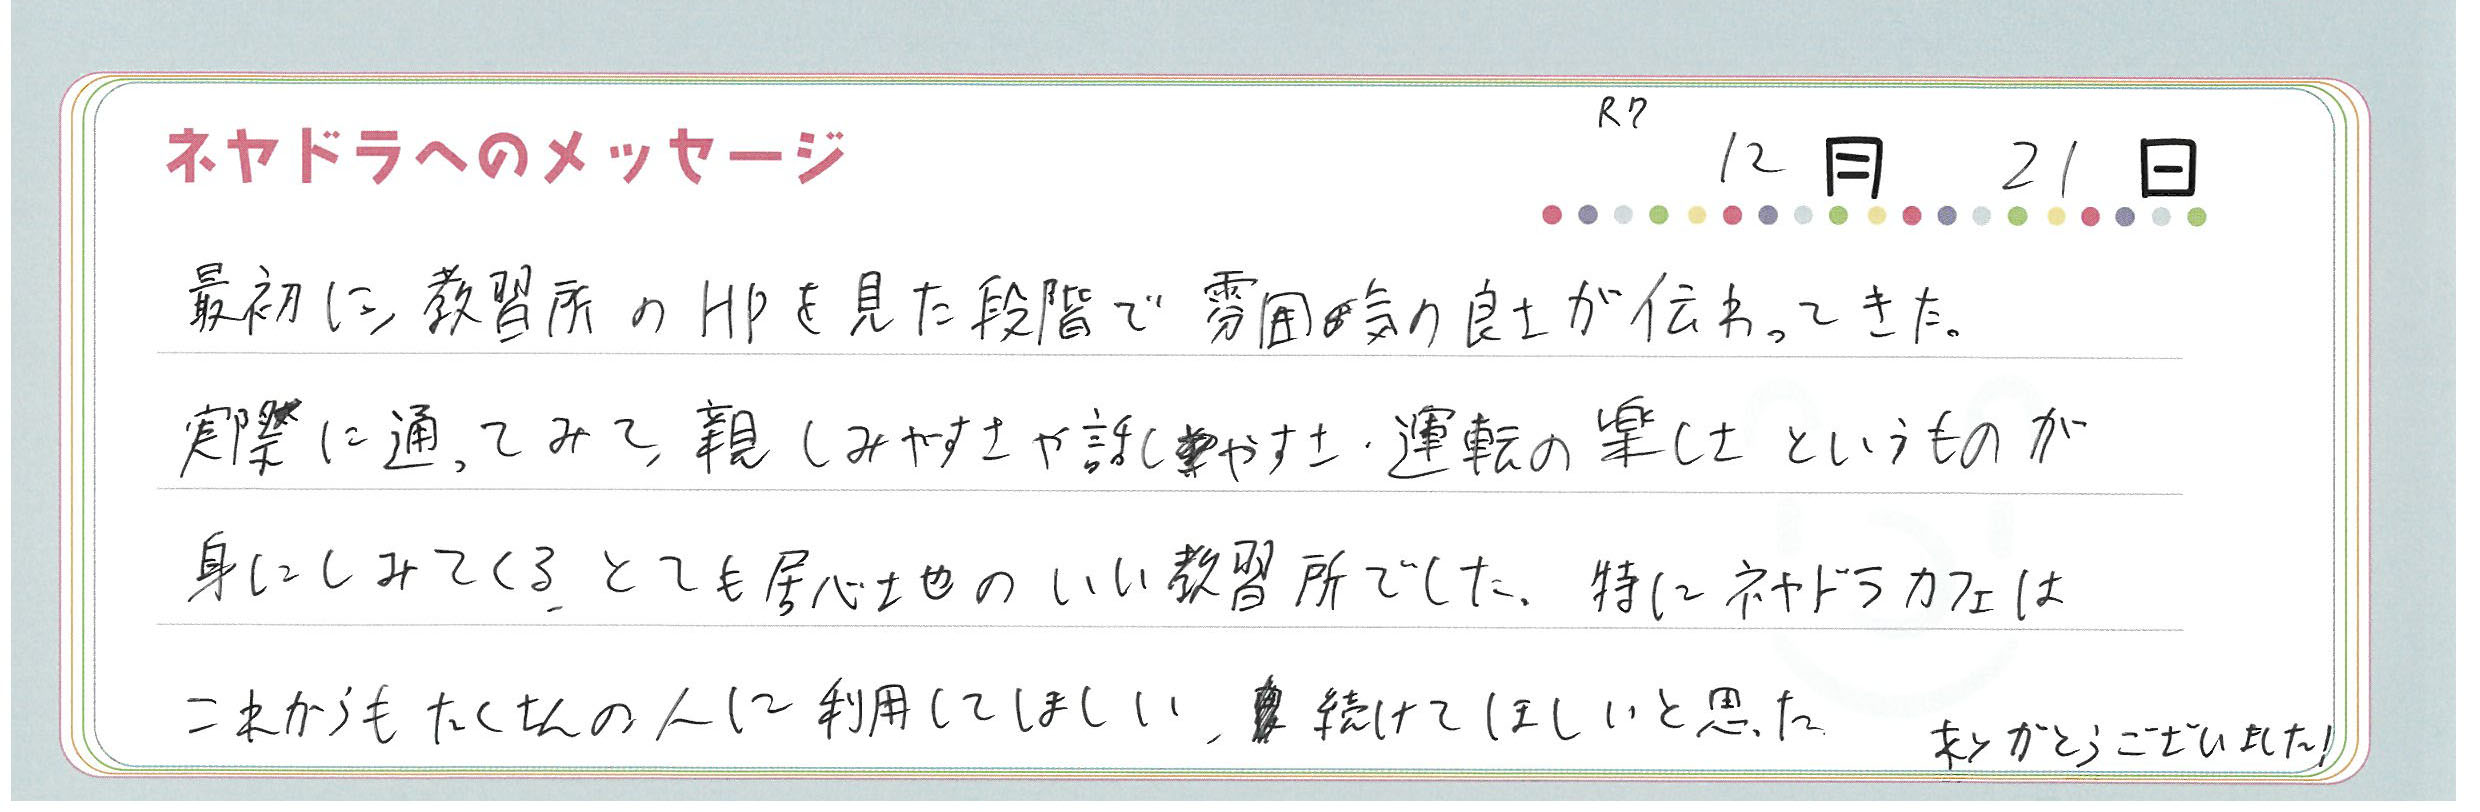 ネヤドラへのメッセージ
R7 12月 21日
最初に、教習所のHPを見た段階で雰囲気の良さが伝わってきた。
実際に通ってみて、親しみやすさや話しやすさ・運転の楽しさというものが
身にしみてくる、とても居心地のいい教習所でした。特にネヤドラカフェは
これからもたくさんの人に利用してほしい、続けてほしいと思った
ありがとうございました!